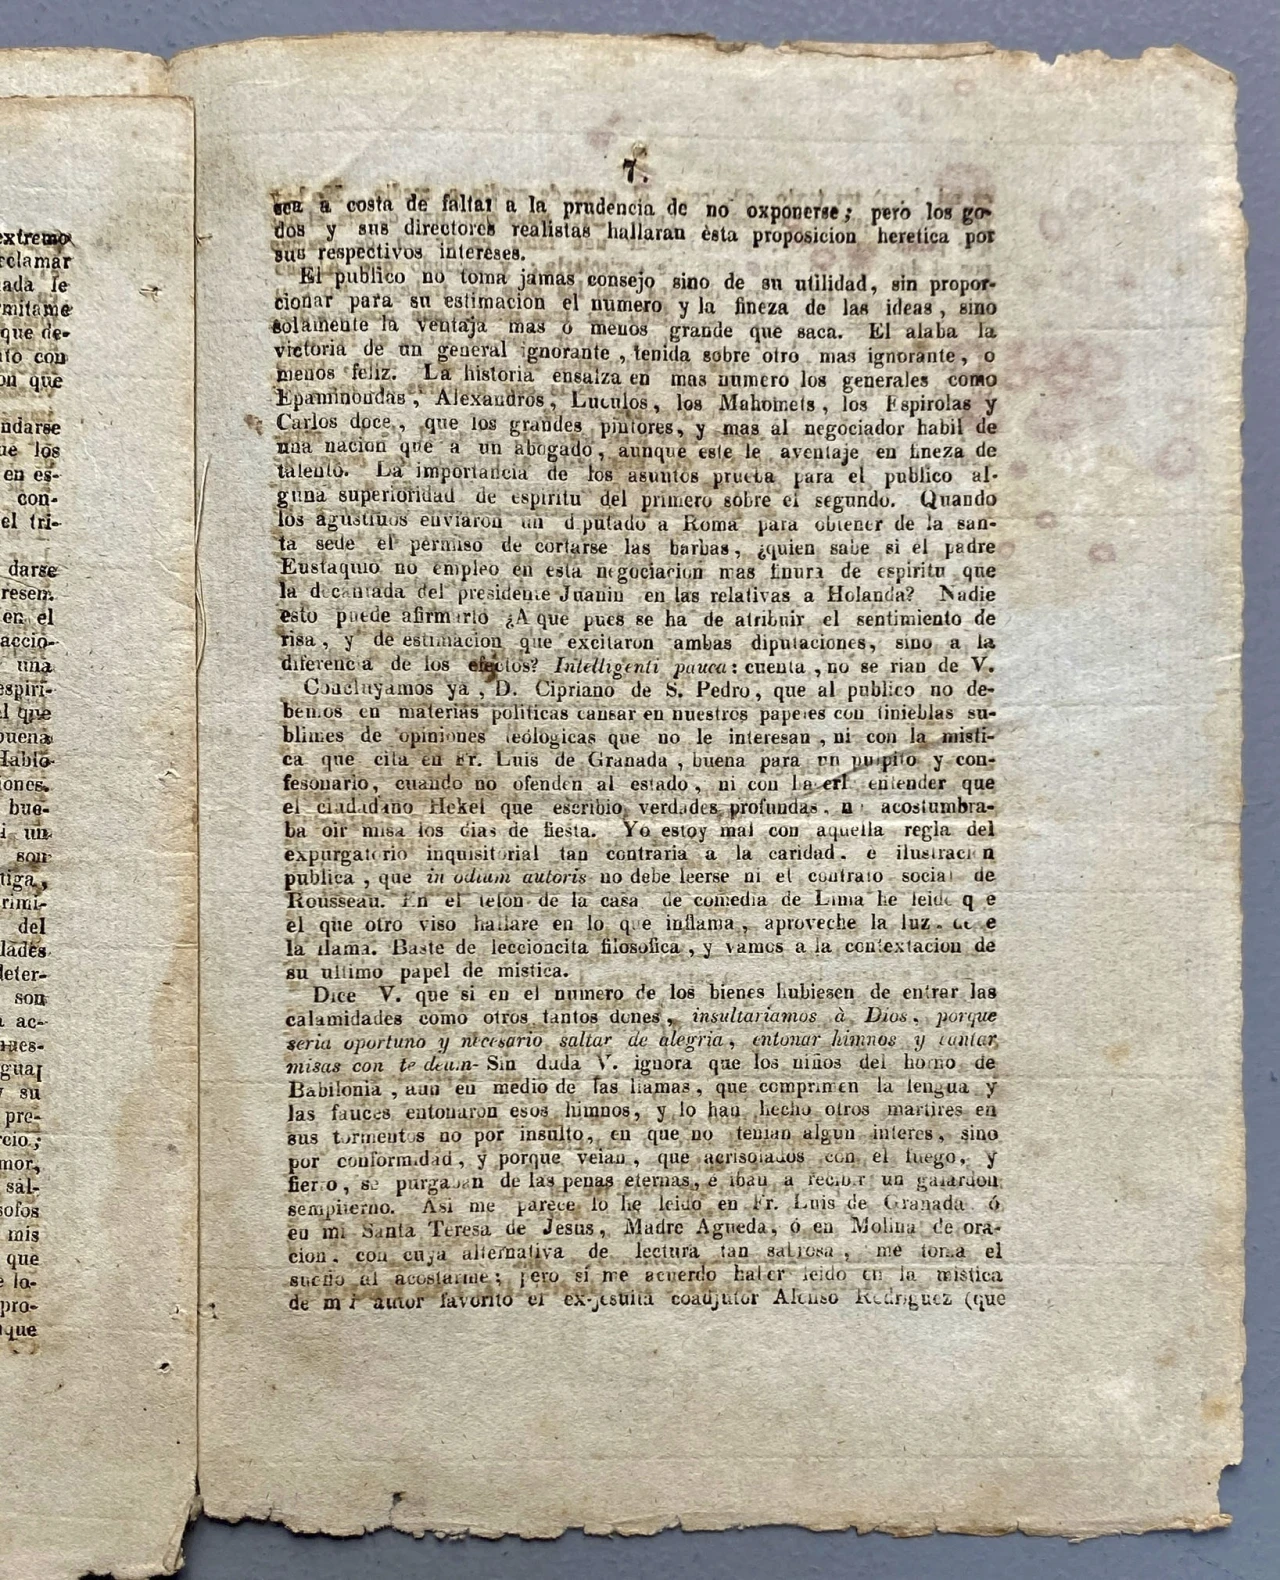 extremo
reclamar
ada le
mitame
que de-
nto con
on que
ndarse
ue los
en es-
con-
el tri-
darse
resen.
en el
accio-
una
espiri-
l que
buena
Hablo
iones.
bue-
i un
son
tiga,
rimi-
del
dades
deter-
son
ac-
nues-
gual
y su
pre-
rcio;
mor,
sal-
sofos
mis
que
lo-
pro-
que
7.
sea à costa de faltar a la prudencia de no oxponerse; pero los go-
dos y sus directores realistas hallaran esta proposicion heretica por
sus respectivos intereses.
El publico no toma jamas consejo sino de su utilidad, sin propor-
cionar para su estimacion el numero y la fineza de las ideas, sino
solamente la ventaja mas o menos grande que saca. El alaba la
victoria de un general ignorante, tenida sobre otro mas ignorante, o
menos feliz. La historia ensalza en mas numero los generales como
Epaminondas, Alexandros, Luculos, los Mahomets, los Espirolas y
Carlos doce, que los grandes pintores, y mas al negociador habil de
una nacion que a un abogado, aunque este le aventaje en fineza de
talento. La importancia de los asuntos prueba para el publico al-
guna superioridad de espiritu del primero sobre el segundo. Quando
los agustinos enviaron un diputado a Roma para obtener de la san-
ta sede el permiso de cortarse las barbas, ¿quien sabe si el padre
Eustaquio no empleo en esta negociacion mas finura de espiritu que
la decantada del presidente Juanin en las relativas a Holanda? Nadie
esto puede afirmarlo ¿A que pues se ha de atribuir el sentimiento de
risa, y de estimacion que excitaron ambas diputaciones, sino a la
diferencia de los efectos? Intelligenti pauca: cuenta, no se rian de V.
Concluyamos ya, D. Cipriano de S. Pedro, que al publico no de-
bemos en materias politicas cansar en nuestros papeles con tinieblas su-
blimes de opiniones teologicas que no le interesan, ni con la misti-
ca que cita en Fr. Luis de Granada, buena para un pulpito y con-
fesonario, cuando no ofenden al estado, ni con entender que
el ciudadano Hekel que escribio verdades profundas, no acostumbra-
ba oir misa los dias de fiesta. Yo estoy mal con aquella regla del
expurgatorio inquisitorial tan contraria a la caridad, e ilustracion
publica, que in odium autoris no debe leerse ni el contrato social de
Rousseau. En el telon de la casa de comedia de Lima he leido que
el que otro viso hallare en lo que inflama, aproveche la luz, deje
la llama. Baste de leccioncita filosofica, y vamos a la contextacion de
su ultimo papel de mistica.
Dice V. que si en el numero de los bienes hubiesen de entrar las
calamidades como otros tantos dones, insultariamos à Dios, porque
seria oportuno y necesario saltar de alegria, entonar himnos y cantar
misas con te deum- Sin duda V. ignora que los niños del horno de
Babilonia, aun en medio de las llamas, que comprimen la lengua y
las fauces entonaron esos himnos, y lo han hecho otros martires en
sus tormentos no por insulto, en que no tenian algun interes, sino
por conformidad, y porque veian, que acrisolados con el fuego, y
fierro, se purgaban de las penas eternas, e iban a recibir un galardon
sempiterno. Asi me parece lo he leido en Fr. Luis de Granada ó
en mi Santa Teresa de Jesus, Madre Agueda, ó en Molina de ora-
cion, con cuya alternativa de lectura tan sabrosa, me toma el
sueño al acostarme; pero si me acuerdo haber leido en la mistica
de mi autor favorito el ex-jesuita coadjutor Alonso Rodriguez (que